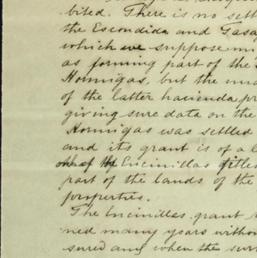 bited. There is no settl
the Escondida and Tasa
which we suppose mi
as forming part of the
Hormigas, but the
of the latter hacienda pr
giving sure data on the
Hormigas was settled
and its grant is of a l
one of the Encinillas titles
part of the lands of the
properties.
The Encinillas grant
ned many years withou
sured and when the surv